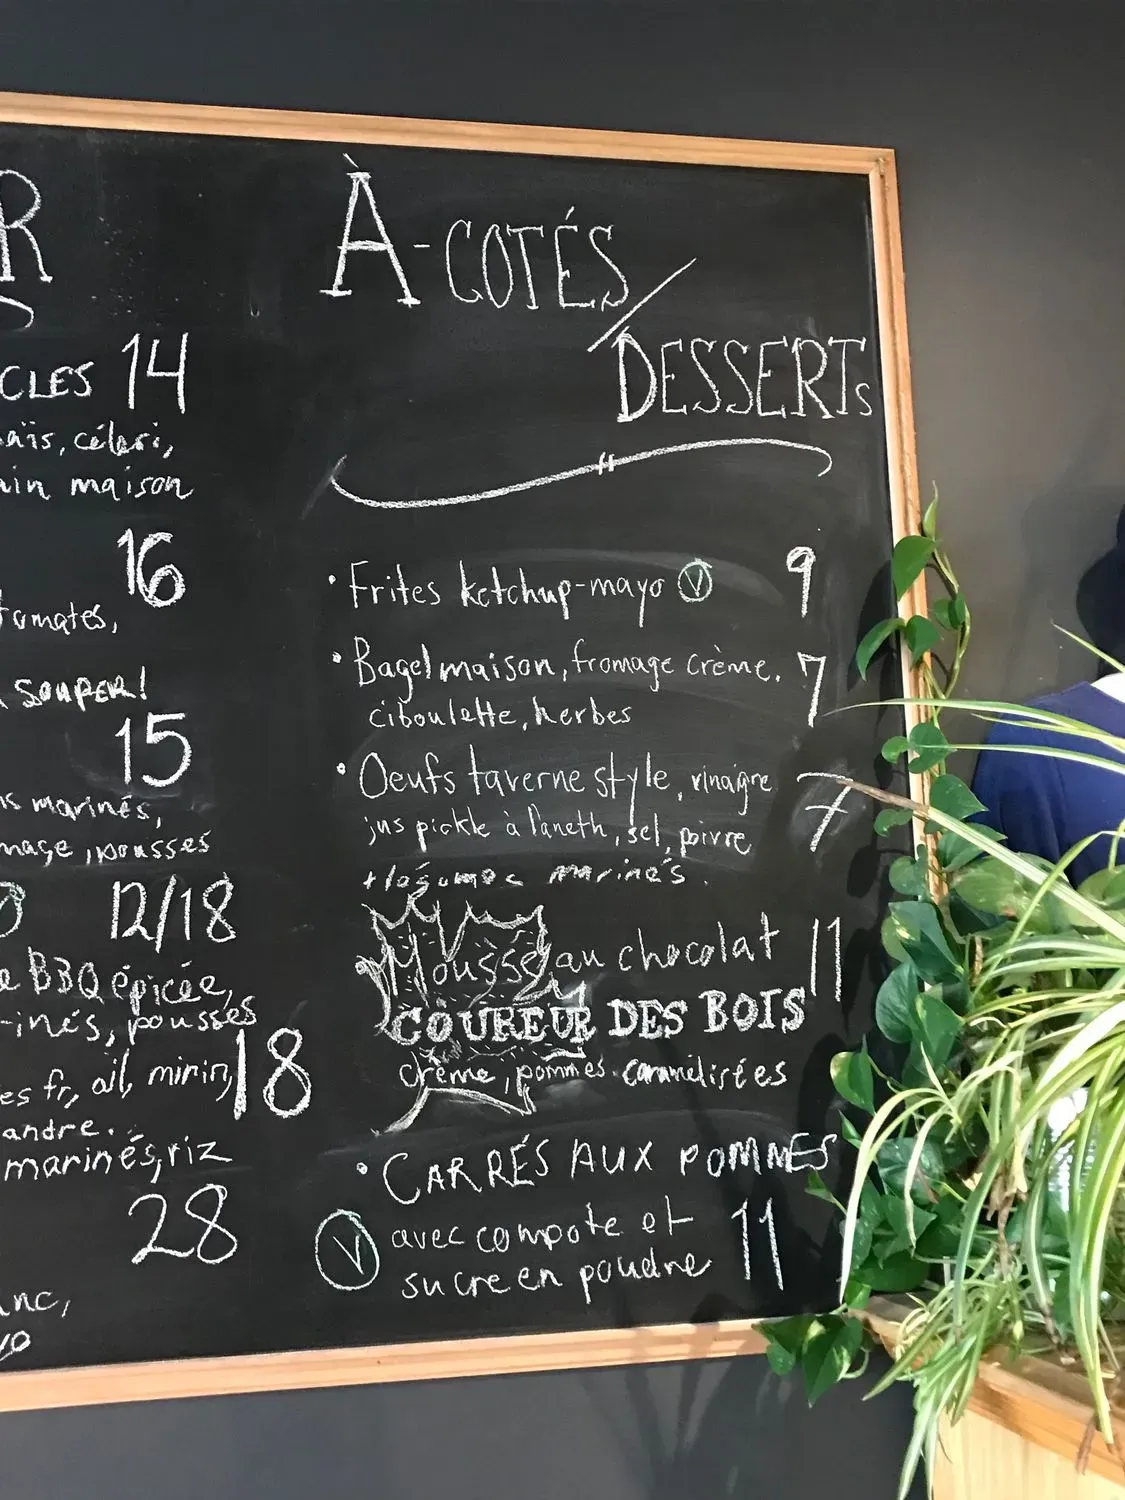 R
CLES 14
aïs, céleri,
ain maison
16
tomates,
SOUPER!
15
marinés,
mage, pousses
12/18
e BBQ épicée,
-inés, pousses
es fr, ail, mirin, 18
andre.
marinés, riz
28
anc,
yo
À-COTÉS/
DESSERTs
• Frites ketchup-mayo Ⓥ 9
• Bagel maison, fromage crème, 7
ciboulette, herbes
• Oeufs taverne style, vinaigre 7
jus pickle à l'aneth, sel, poivre
+ légumes marinés.
Mousse au chocolat 11
COUREUR DES BOIS
crème, pommes caramélisées
• CARRÉS AUX POMMES
Ⓥ avec compote et 11
sucre en poudre